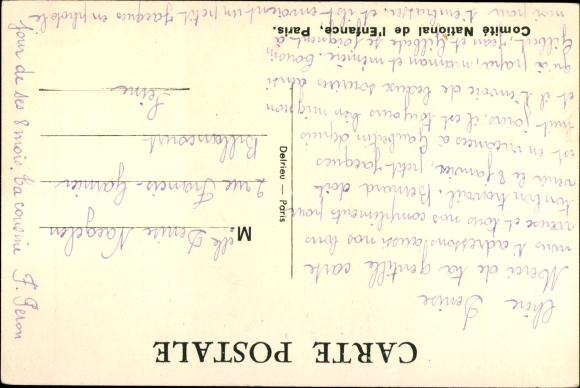 CARTE POSTALE
Chère Denise
Merci de ta gentille carte
nous t'adressons aussi nos bons
vœux et tous nos compliments pour
ton bon travail. Bernard doit
venir le 8 janvier, petit-Jacques
est en vacances à Gaubertin depuis
huit jours, il est toujours bien mignon
et il t'envoie de beaux sourires ainsi
qu'à papa, maman et minière.
Gilbert, Jean et Gilberte se joignent à
moi pour t'embrasser, et ils t'envoient un petit Jacques en photo le
jour de ses 8 mois. Ta cousine F. Peron
Delrieu — Paris
Melle Denise Naegelen
2 rue Francis-Garnier
Billancourt
Seine
Comité National de l'Enfance, Paris.